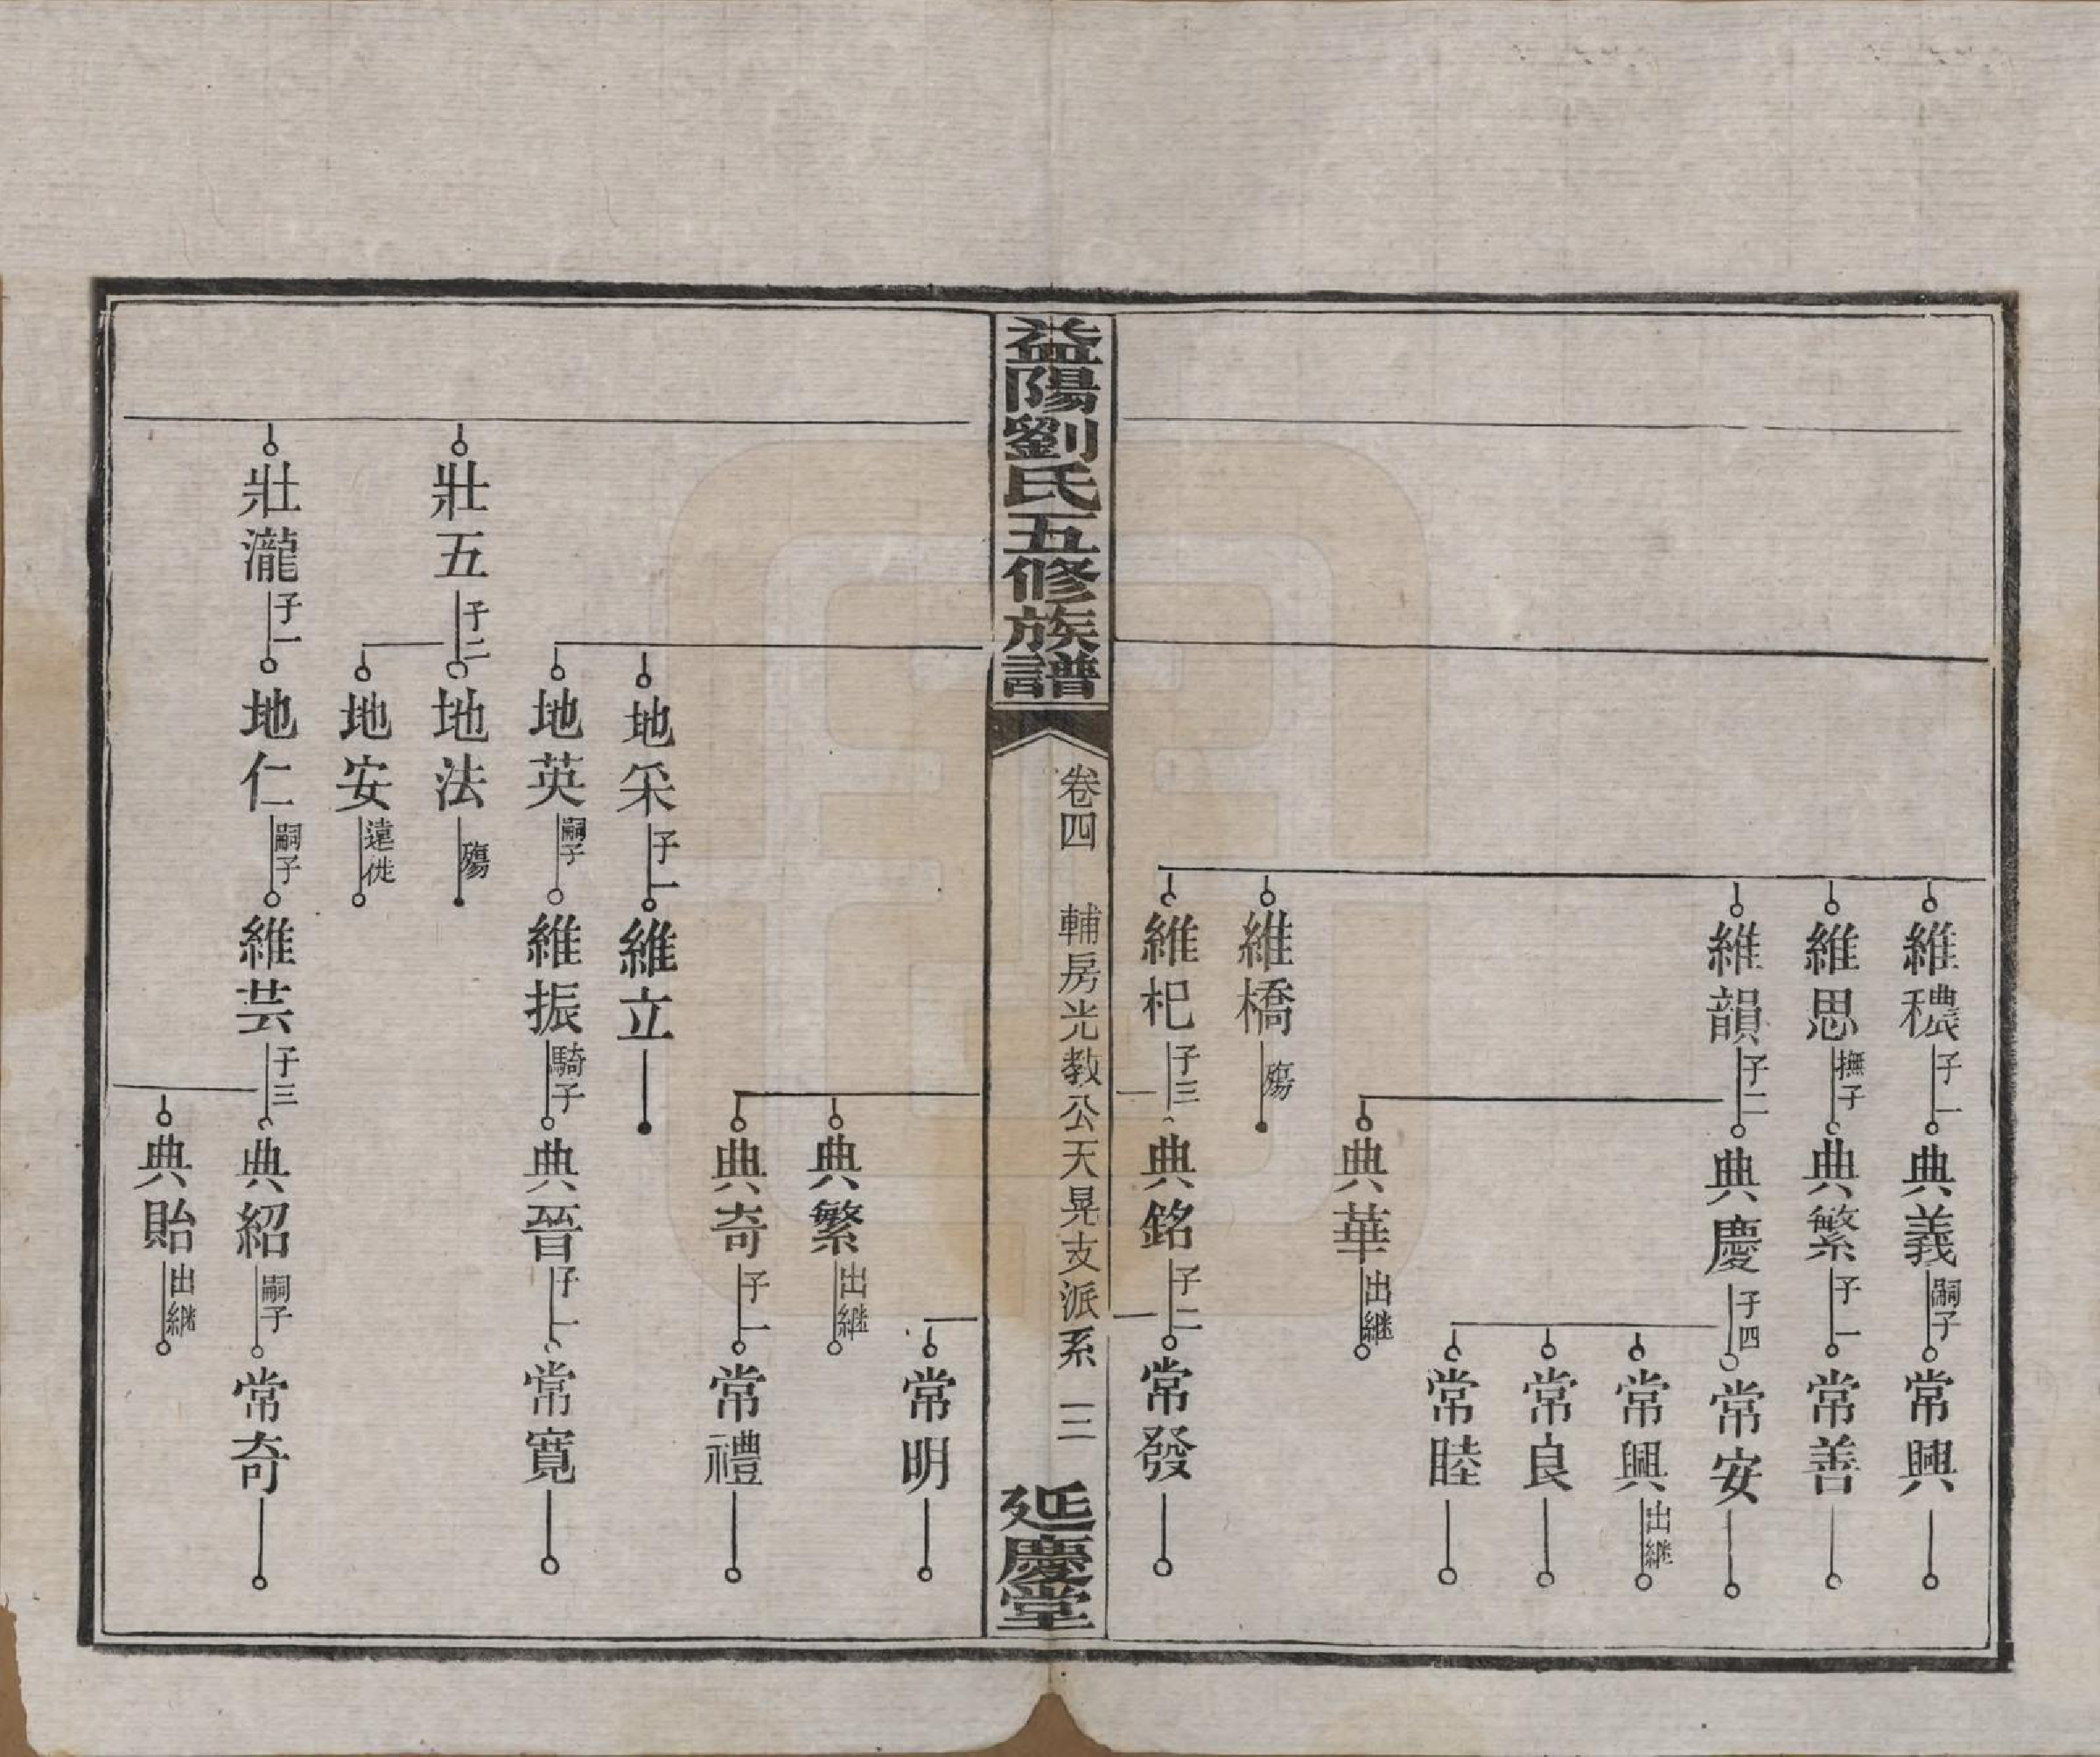 維穠子一
典義嗣子
常興
維思撫子
典繁子一
常善
維韻子二
典慶子四
常安
常興出繼
常良
常睦
典華出繼
維橋殤
維杞子三
典銘子二
常發
益陽劉氏五修族譜
卷四
輔房光教公天晃支派系
三
延慶堂
常明
典繁出繼
典奇子一
常禮
地采子一
維立
地英嗣子
維振騎子
典晉子一
常寬
壯五子二
地法殤
地安遠徙
壯瀧子一
地仁嗣子
維芸子三
典紹嗣子
常奇
典貽出繼